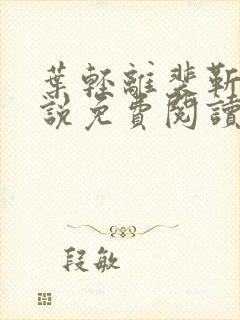 葉輕離裴靳
說免費閱讀
段敏